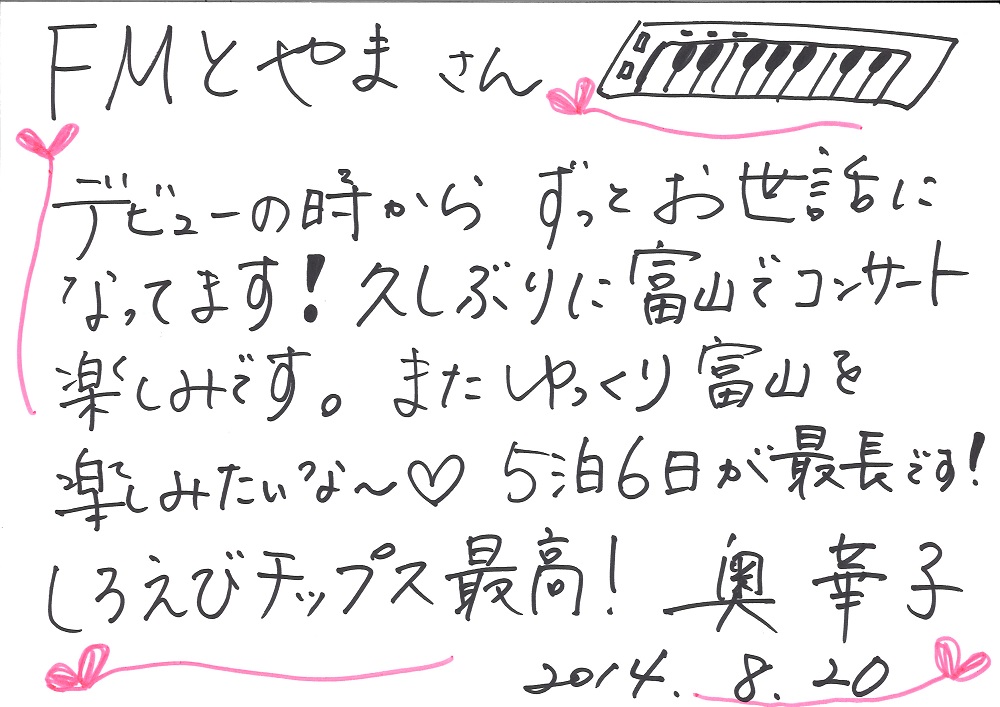 FMとやまさん
デビューの時から ずっとお世話に
なってます！久しぶりに富山でコンサート
楽しみです。またゆっくり富山を
楽しみたいな〜♡ 5泊6日が最長です！
しろえびチップス最高！ 奥 華子
2014. 8. 20